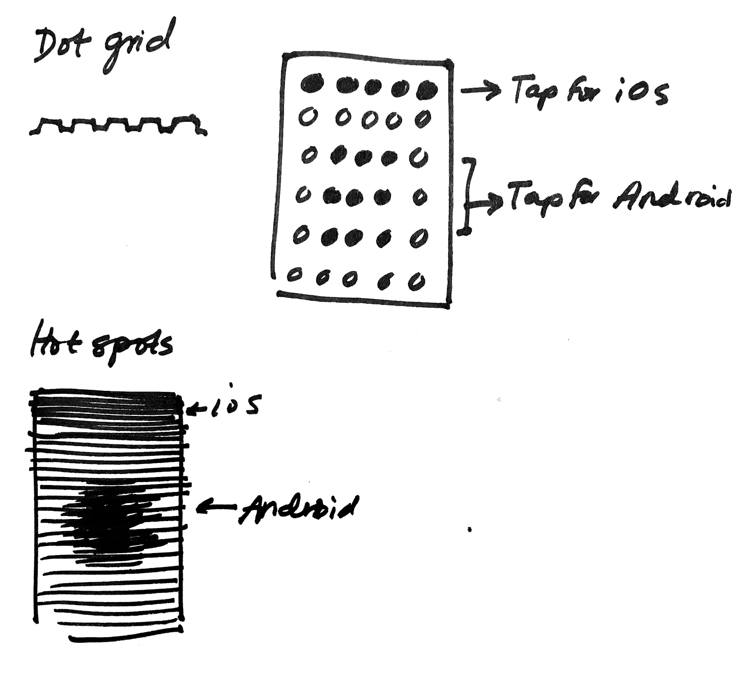 Dot grid
Tap for iOS
Tap for Android
Hot spots
iOS
Android